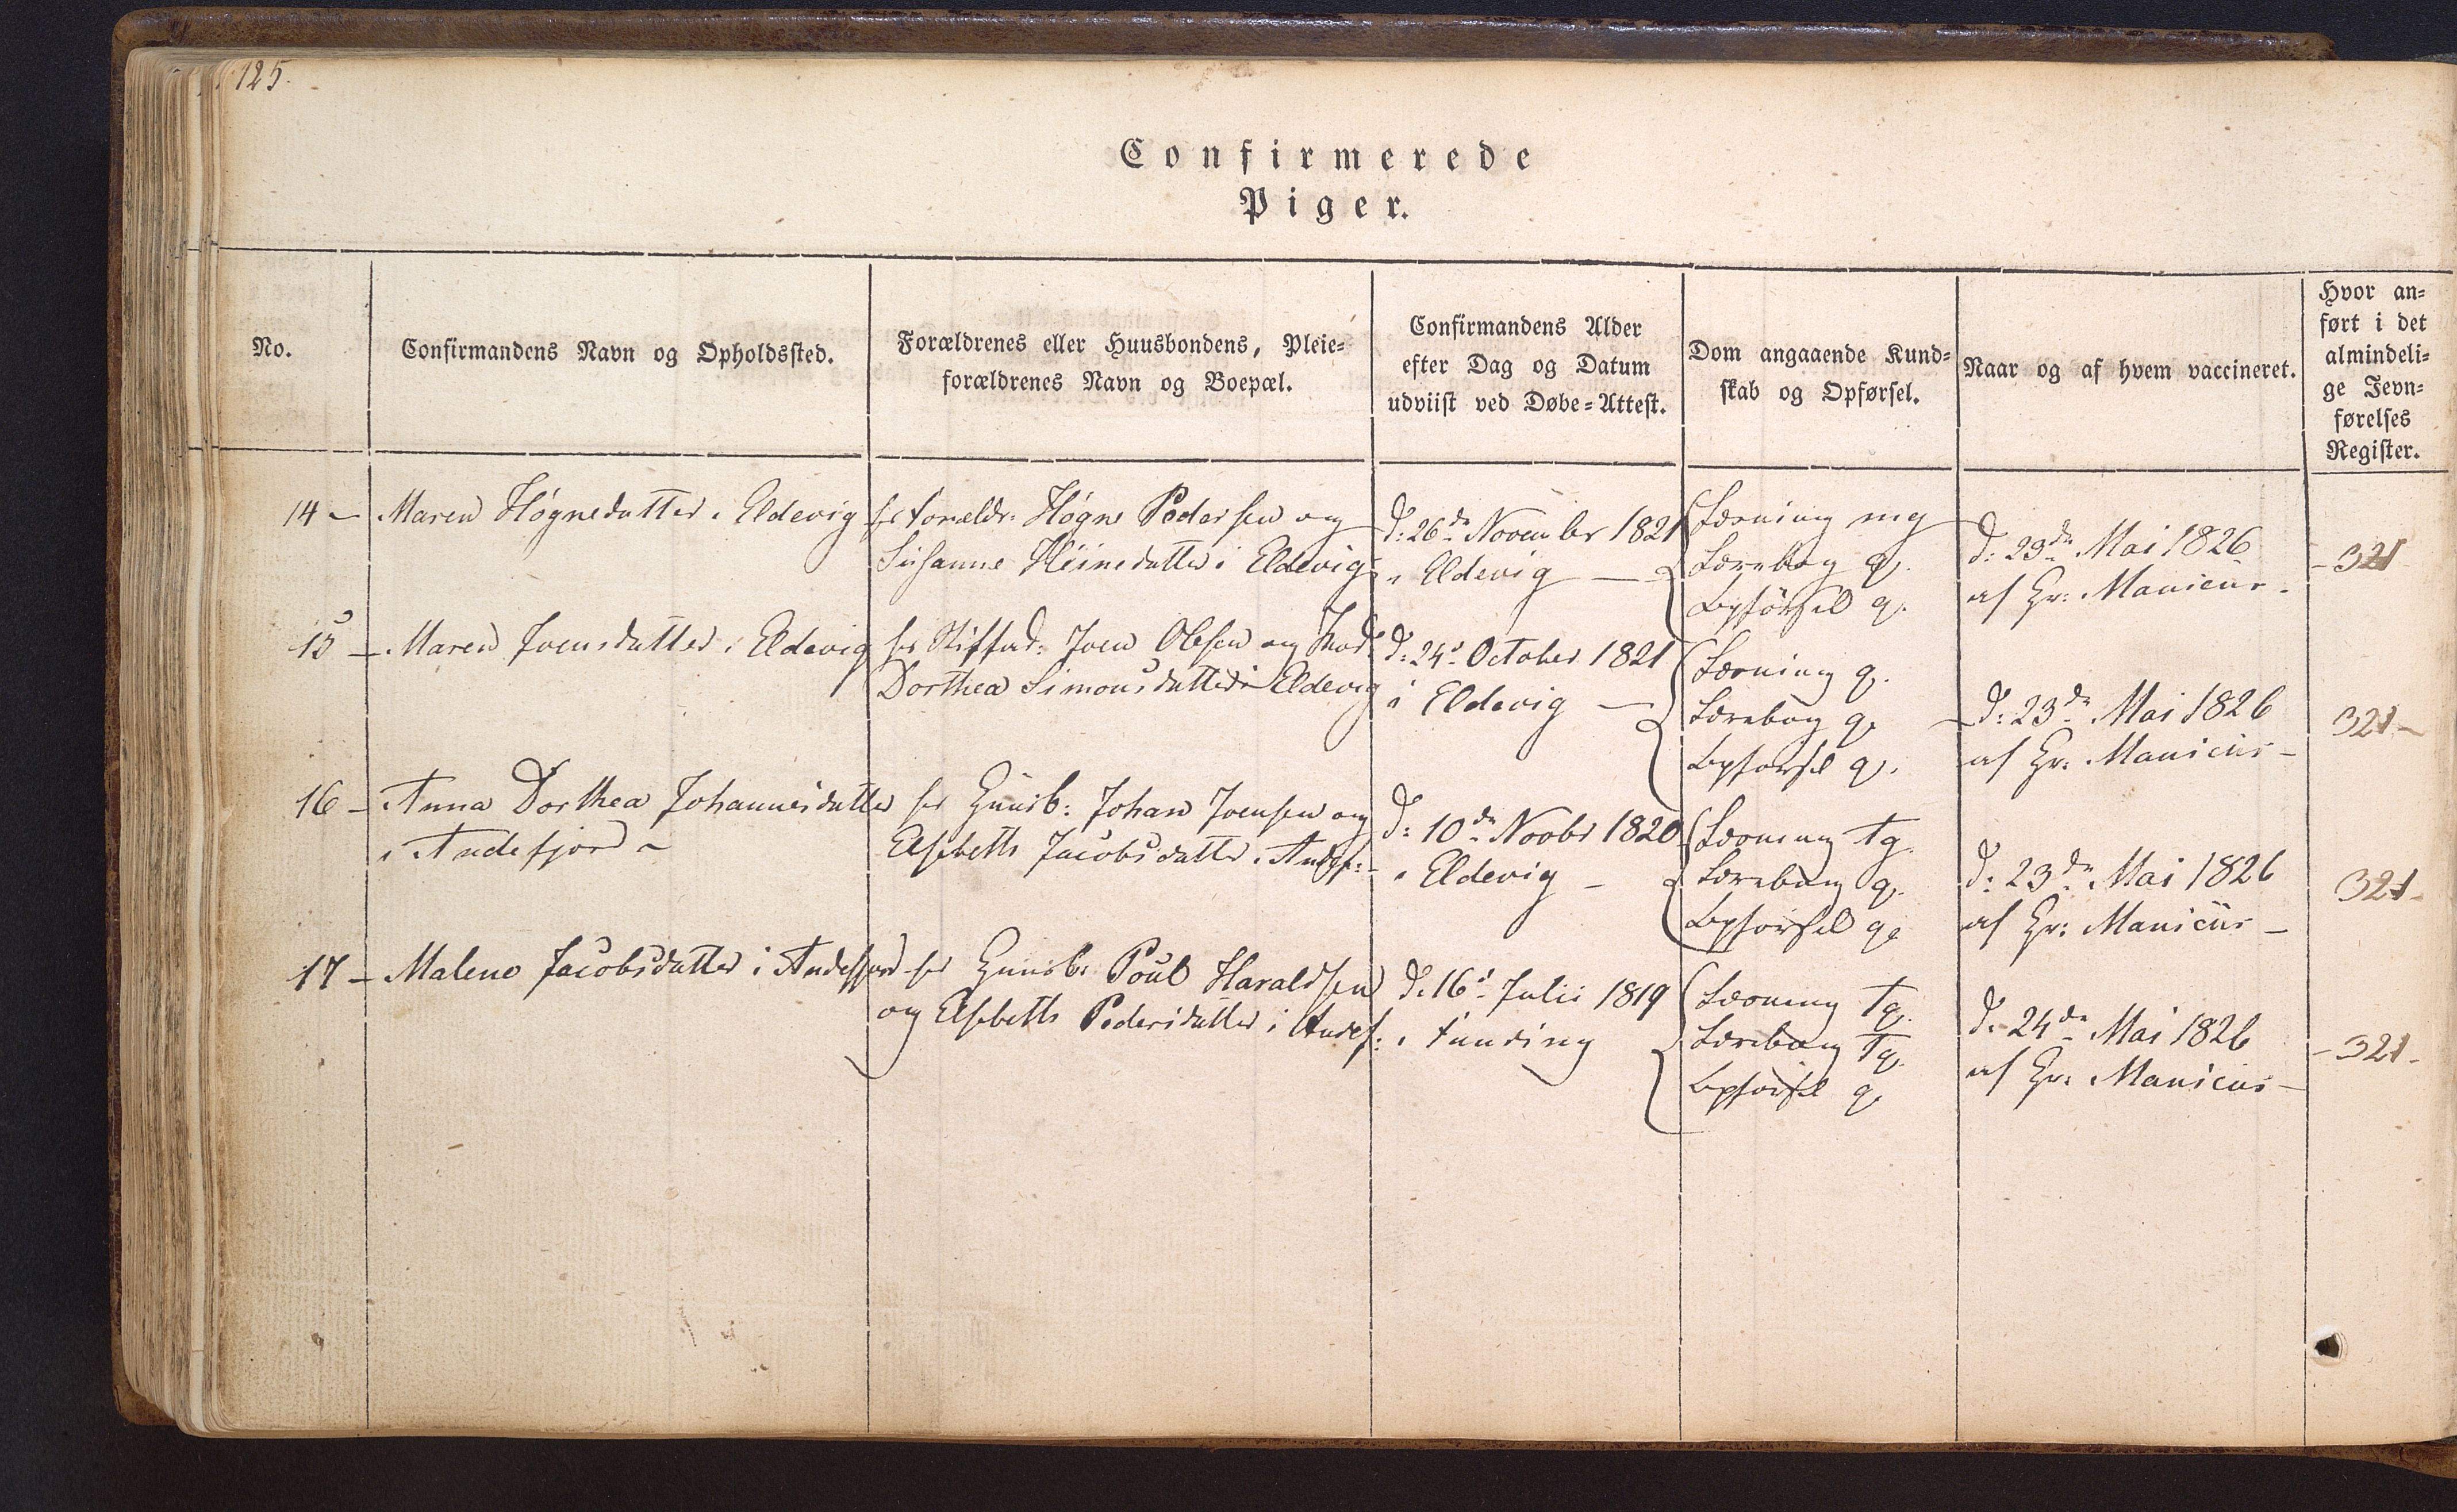 125.
Confirmerede
Piger.
No.
Confirmandens Navn og Opholdssted.
Forældrenes eller Huusbondens, Pleie=
forældrenes Navn og Boepæl.
Confirmandens Alder
efter Dag og Datum
udviist ved Døbe=Attest.
Dom angaaende Kund=
skab og Opførsel.
Naar og af hvem vaccineret.
Hvor an=
ført i det
almindeli=
ge Jevn=
førelses
Register.
14 - Maren Høgnedatter i Eldevig
for Forældr: Høgne Pedersen og
Susanne Heinedatter i Eldevig
d: 26de November 1821
i Eldevig -
Lærning mg
Lærebog g.
Opførsel g.
d: 23de Mai 1826
af Hr: Manicus.
- 321
15 - Maren Joensdatter i Eldevig
for Stiffad: Joen Olesen og Mod:
Dorthea Simonsdatter i Eldevig
d: 24d October 1821
i Eldevig -
Lærning g.
Lærebog g.
Opførsel g.
d: 23de Mai 1826
af Hr: Manicus -
321 -
16 - Anna Dorthea Johannesdatter
i Andefjord -
for Huusb: Johan Joensen og
Elsebeth Jacobsdatter i Andef: -
d: 10de Novbr 1820
i Eldevig -
Lærning tg.
Lærebog g.
Opførsel g.
d: 23de Mai 1826
af Hr: Manicus -
321 -
17 - Malene Jacobsdatter i Andefjord
for Huusb: Poul Haraldsen
og Elsebeth Pedersdatter i Andef:
d: 16d Julii 1819
i Funding
Lærning Tg.
Lærebog Tg.
Opførsel g.
d: 24de Mai 1826
af Hr: Manicus -
- 321 -